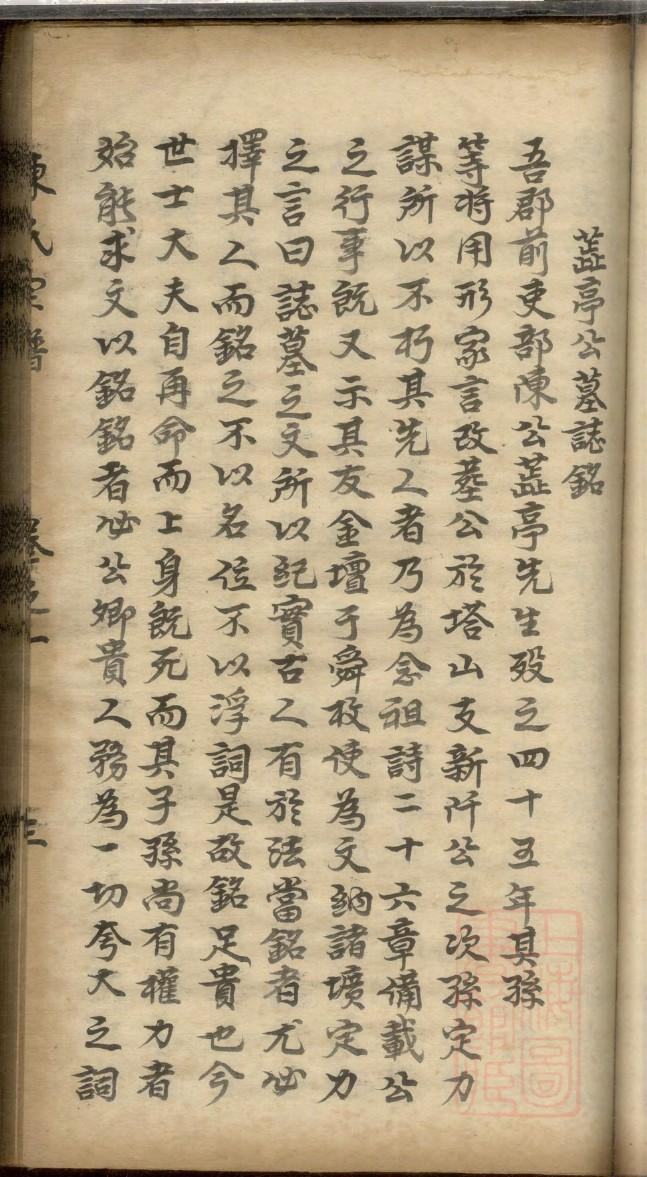 葚亭公墓誌銘
吾郡前吏部陳公葚亭先生殁之四十五年其孫
等将用形家言改塟公於塔山支新阡公之次孫定力
謀所以不朽其先人者乃為念祖詩二十六章備載公
之行事既又示其友金壇于舜枚使為文納諸壙定力
之言曰誌墓之文所以紀實古人有於法當銘者尤必
擇其人而銘之不以名位不以浮詞是故銘足貴也今
世士大夫自再命而上身既死而其子孫尚有權力者
始能求文以銘銘者必公卿貴人務為一切夸大之詞
陳氏宗譜 卷之一